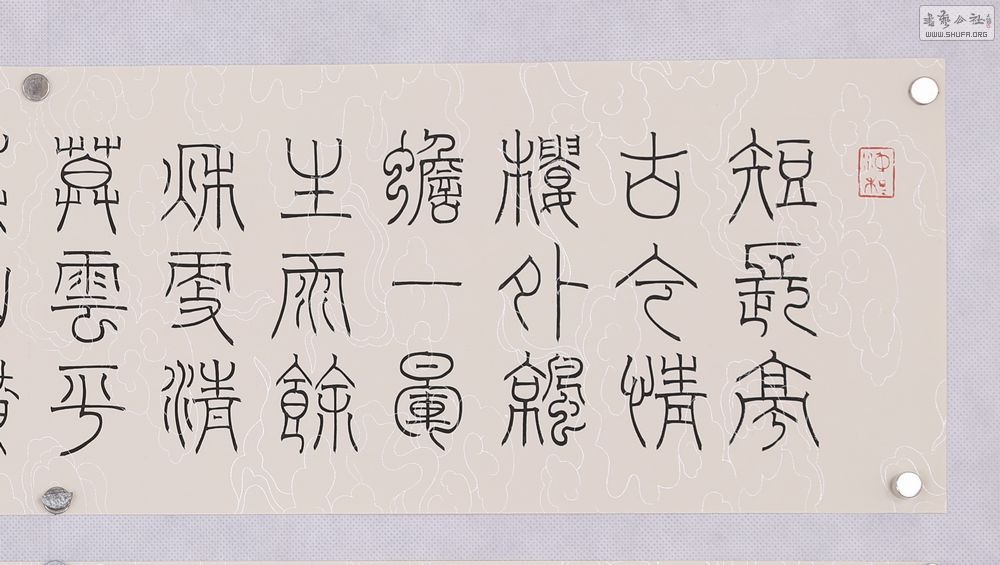 短長亭
古今情
樓外涼
蟾一暈
生雨餘
秋更清
莫雲平
書藝公社
WWW.SHUFA.ORG